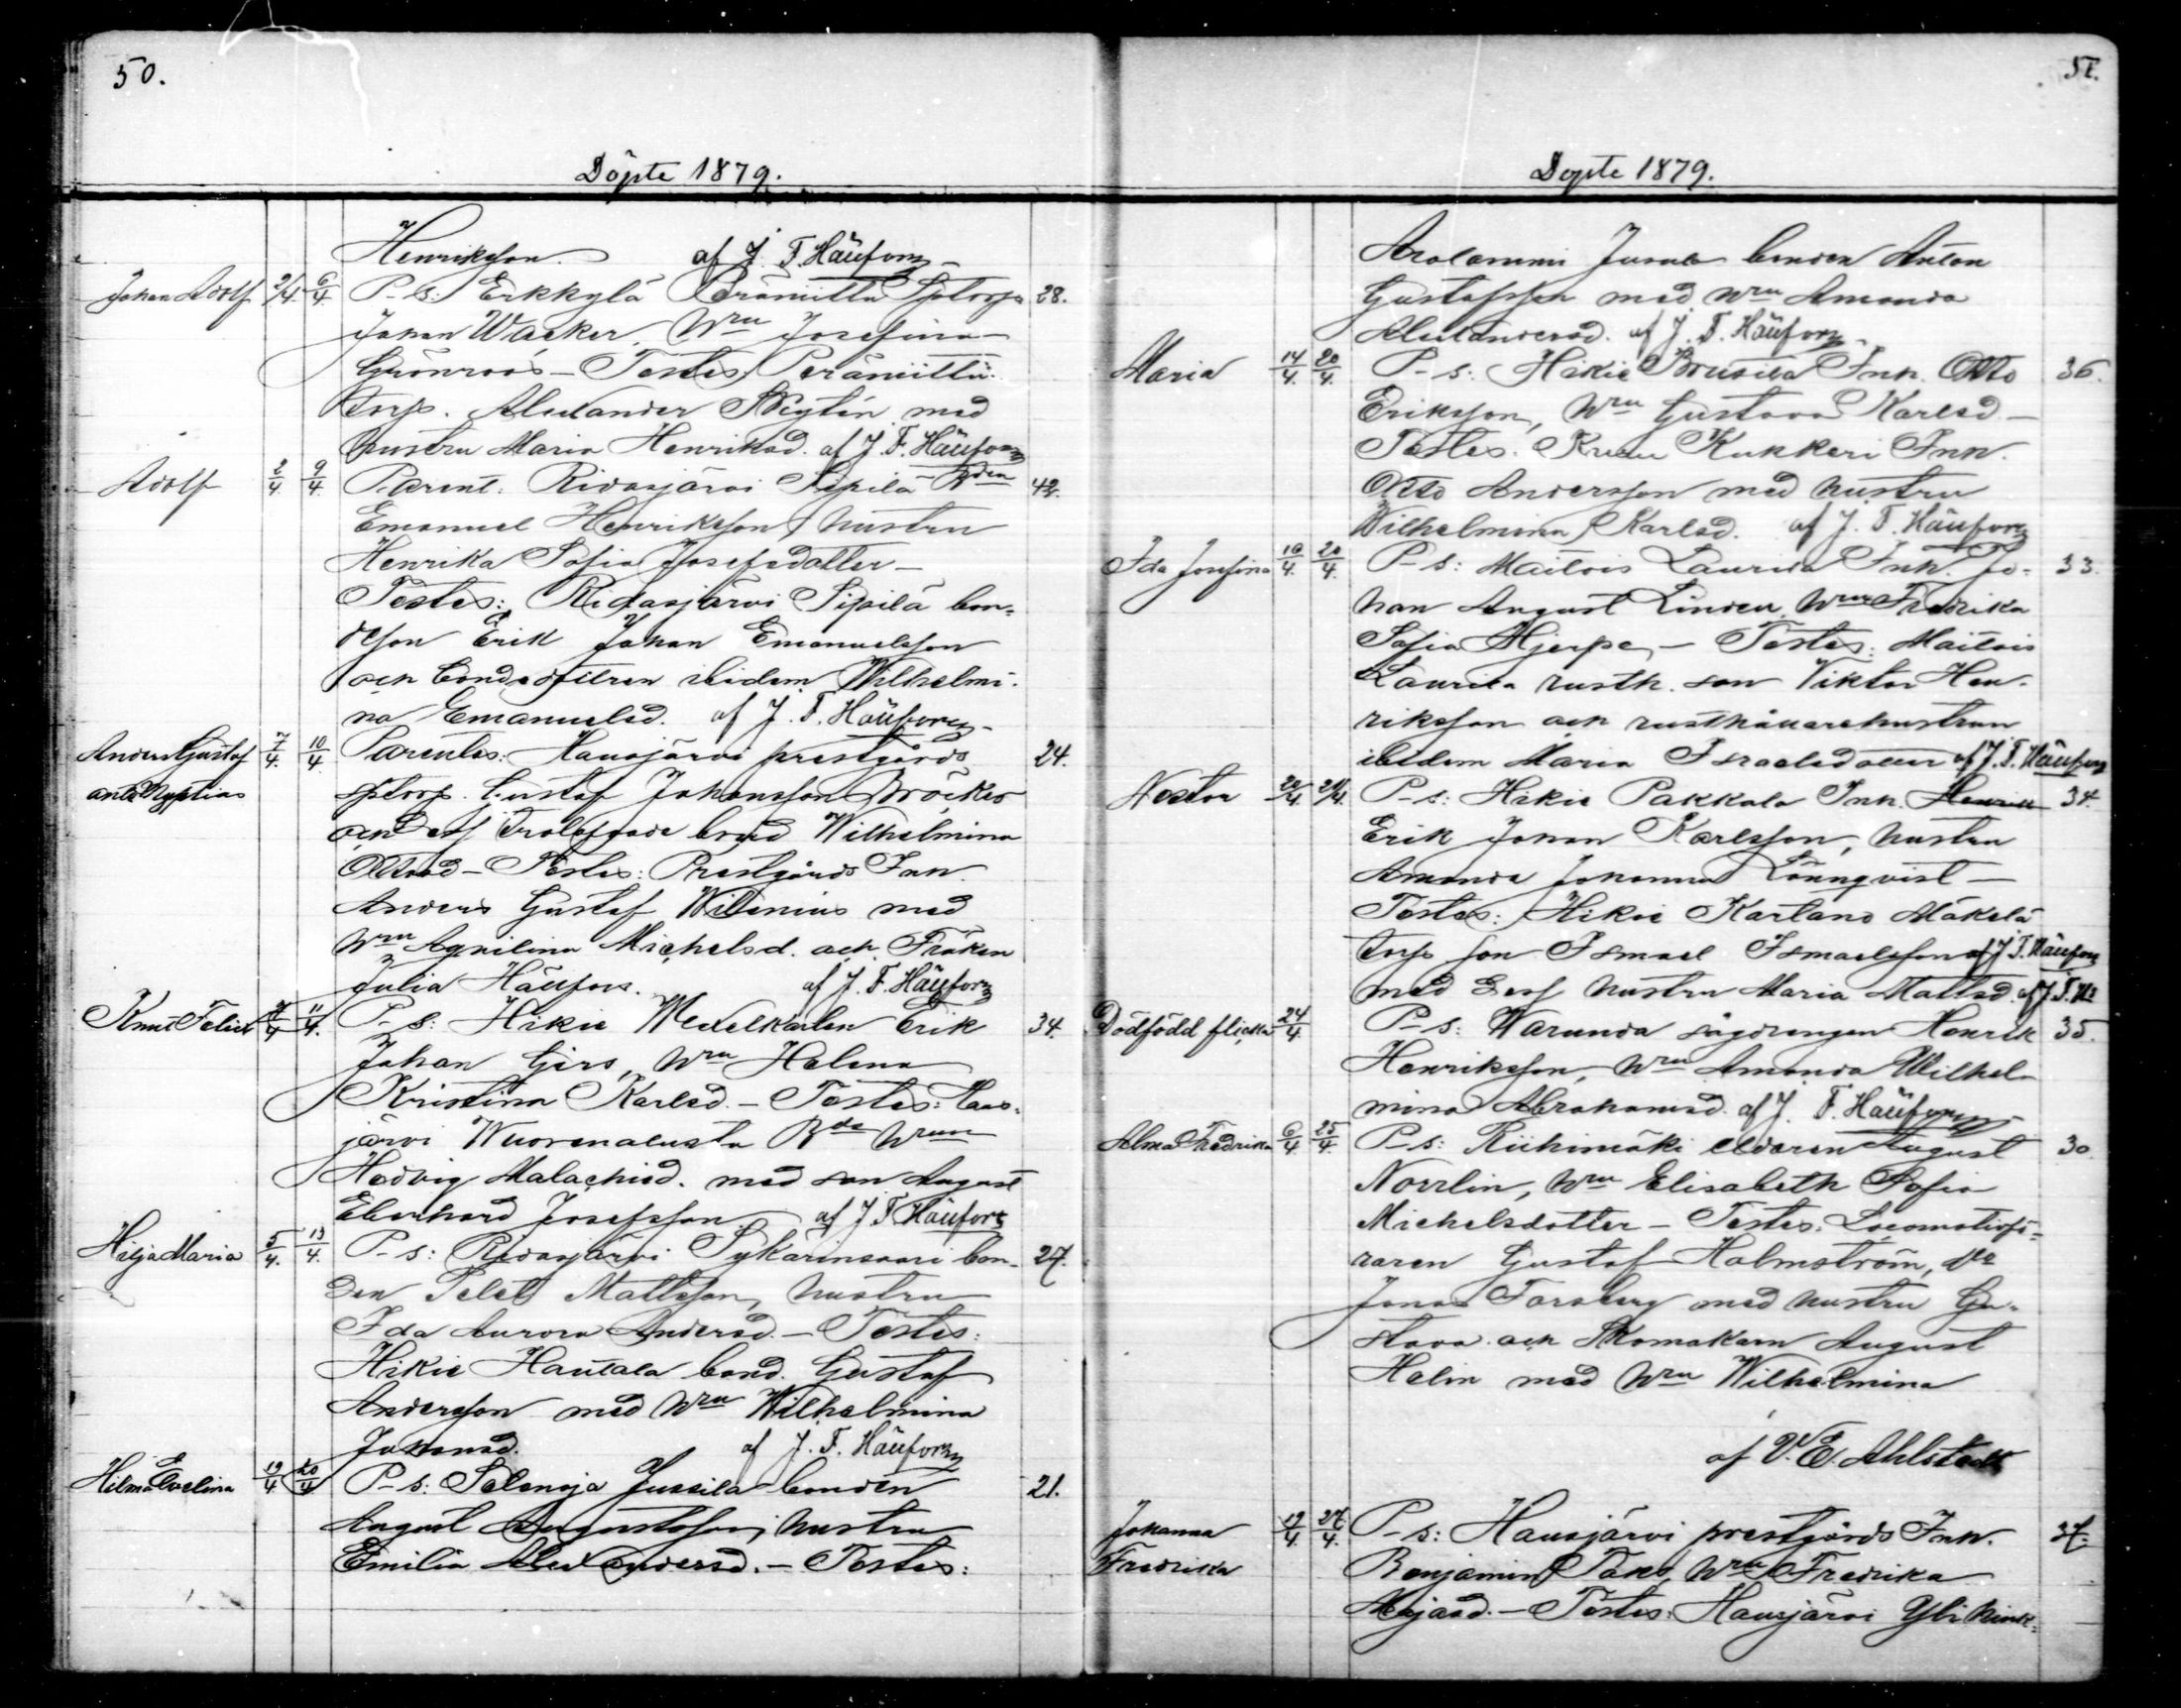 50.
Döpte 1879.
Henriksson. af J. F. Häufors
Johan Adolf 2/4 6/4 P-s: Erkkylä Perämiittu Sptorp. 28.
Johan Wacker, Hru Josefina
Grönroos - Testes: Perämiittu
torp. Alexander Skytén med
hustru Maria Henriksd. af J. F. Häufors
Adolf 2/4. 9/4. Parent: Ridasjärvi Sipilä Bden 42.
Emanuel Henriksson, hustru
Henrika Sofia Josefsdotter -
Testes: Ridasjärvi Sipilä bon-
deson Erik Johan Emanuelsson
och bondedottren ibidem Wilhelmi-
na Emanuelsd. af J. F. Häufors
Anders Gustaf 7/4. 10/4. Parentes: Hausjärvi prestgårds 24.
ante nuptias sptorp. Gustaf Johansson Bröcker
och dess trolofvade brud Wilhelmina
Ottosd - Testes: Prestgårds Inh.
Anders Gustaf Widenius med
Hru Aqvilina Michelsd. och Fröken
Julia Häufors. af J. F. Häufors
Knut Felix 11/4. P-s: Hikiä Wexelkarlen Erik 34.
Johan Girs, Hru Helena
Kristina Karlsd. - Testes: Haus-
järvi Wuorenalusta Bde Hrun
Hedvig Malachisd. med son August
Eberhard Josefsson. af J. F. Häufors
Hilja Maria 5/4. 13/4. P-s: Ridasjärvi Sykärinsaari bon- 27.
den Mattsson, hustru
Ida Aurora Andersd. - Testes:
Hikiä Hautala bond. Gustaf
Andersson med Hru Wilhelmina
Johansd. af J. F. Häufors
Hilma Evelina 19/4 20/4 P-s: Selänoja Jussila bonden 21.
August Augustsson, hustru
Emilia Alexandersd. - Testes:
51.
Döpte 1879.
Arolammi Jussila bonden Anton
Gustafsson med Hru Amanda
Alexandersd. af J. F. Häufors
Maria 14/4. 20/4. P-s: Hikiä Prusila Inh. Otto 36.
Eriksson, Hru Gustava Karlsd -
Testes: Kukkeri Inh.
Otto Andersson med hustru
Wilhelmina Karlsd. af J. F. Häufors
Ida Josefina 16/4. 20/4. P-s: Maitois Laurila Inh. Jo- 33.
han August Linden, Hru Fredrika
Sofia Hjerpe, - Testes: Maitois
Laurila rusth. son Viktor Hen-
riksson och rusthållarehustrun
ibidem Maria Israelsdotter af J. F. Häufors
Nestor 20/4. 21/4. P-s: Hikiä Pakkala Inh. Henrik 34.
Erik Johan Karlsson, hustru
Amanda Johanna Lönnqvist -
Testes: Hikiä Kartano Mäkelä
torp son Ismael Ismaelsson af J. F. Häufors
med dess hustru Maria Mattsd. af J. F. Hs
Dödfödd flicka 24/4. P-s: Warunda sågdrengen Henrik 35.
Henriksson, Hru Amanda Wilhel-
mina Abrahamsd. af J. F. Häufors
Alma Fredrika 6/4 25/4. P-s: Riihimäki eldaren August 30
Norrlin, Hru Elisabeth Sofia
Michelsdotter - Testes: Locomotivfö-
raren Gustaf Holmström, do
Jonas Forsberg med hustru Gu-
stava och Skomakarn August
Helin med Hru Wilhelmina
af V. E. Ahlstedt
Johanna 19/4. 27/4. P-s: Hausjärvi prestgårds Inh. 37.
Fredrika Benjamin Taks, Hru Fredrika
- Testes: Hausjärvi Yli